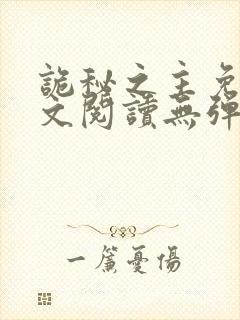 詭秘之主免
文閱讀無彈
一簾憂傷